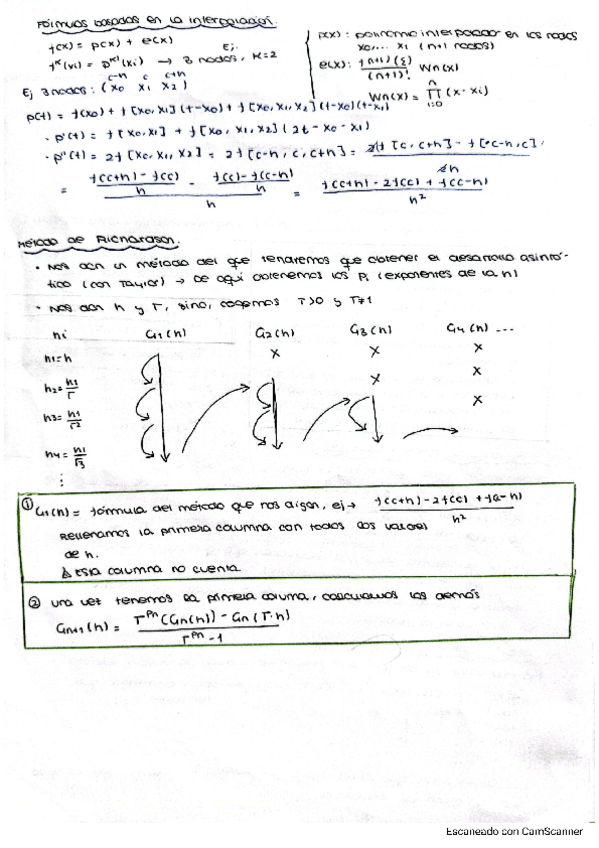 Fórmulas basadas en la interpolación.
f(x) = p(x) + e(x)
p(x): polinomio interpolador en los nodos
x0,... x1 (n+1 nodos)
f^k(xi) = p^k)(xi) → 3 nodos, k=2
Ej.
e(x): f^(n+1)(ξ) / (n+1)! Wn(x)
Wn(x) = ∏ i=0 n (x-xi)
c-h c c+h
Ej 3 nodos: (x0 x1 x2)
p(t) = f(x0) + f[x0,x1](t-x0) + f[x0,x1,x2](t-x0)(t-x1)
· p'(t) = f[x0,x1] + f[x0,x1,x2](2t-x0-x1)
· p''(t) = 2f[x0,x1,x2] = 2f[c-h,c,c+h] = 2(f[c,c+h] - f[c-h,c]) / 2h
= ((f(c+h)-f(c))/h - (f(c)-f(c-h))/h) / h = (f(c+h)-2f(c)+f(c-h)) / h²
Método de Richardson.
· Nos dan un método del que tendremos que obtener el desarrollo asintó-
tico (con Taylor) → De aquí obtenemos los Pi (exponentes de la h)
· Nos dan h y r, sino, cogemos r>0 y r≠1
hi G1(h) G2(h) G3(h) G4(h) ...
h1=h x x x
h2=h1/r x x
h3=h1/r² x
h4=h1/r³
⋮
① G1(h) = fórmula del método que nos digan, ej → (f(c+h)-2f(c)+f(c-h)) / h²
Rellenamos la primera columna con todos los valores
de h.
⚠ Esta columna no cuenta
② Una vez tenemos la primera columna, calculamos las demás
Gn+1(h) = (r^pn (Gn(h)) - Gn(r·h)) / (r^pn - 1)
Escaneado con CamScanner